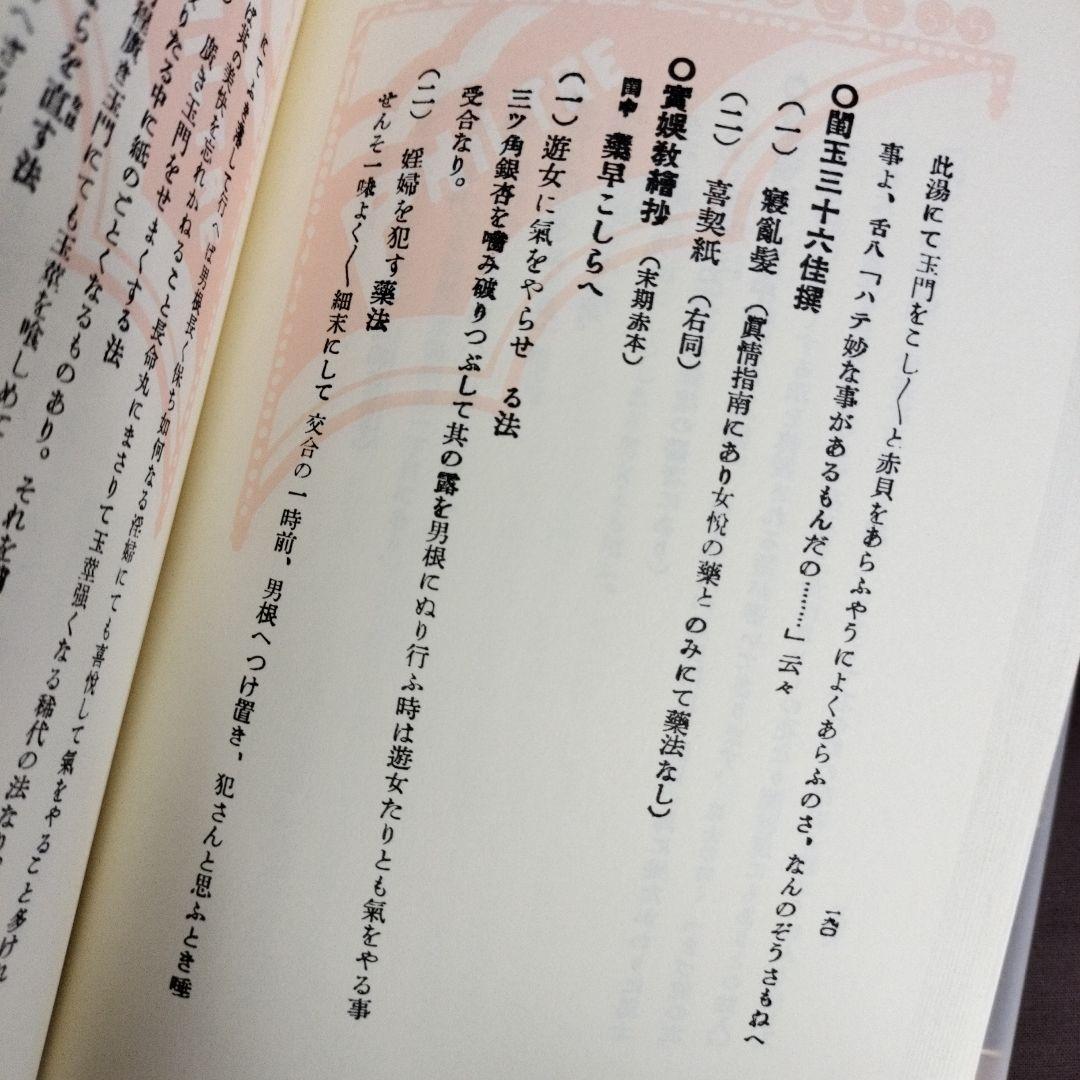 此湯にて玉門をこし〱と赤貝をあらふやうによくあらふのさ、なんのぞうさもねへ
事よ、舌八「ハテ妙な事があるもんだの………」云々
〇閨玉三十六佳撰
(一) 寢亂髮 (眞情指南にあり女悅の藥とのみにて藥法なし)
(二) 喜契紙 (右同)
〇實娯敎繪抄 (末期赤本)
閨中 藥早こしらへ
(一)遊女に氣をやらせ る法
三ツ角銀杏を嚙み破りつぶして其の露を男根にぬり行ふ時は遊女たりとも氣をやる事
受合なり。
(二) 婬婦を犯す藥法
せんそ一味よく〱細末にして交合の一時前、男根へつけ置き、犯さんと思ふとき唾
一九〇
にてふき落して行へば男根長く保ち如何なる淫婦にても喜悅して氣をやること多けれ
ば其の美快を忘れかねること長命丸にまさりて玉莖强くなる稀代の法なり。
廣き玉門をせまくする法
りたる中に紙のごとくなるものあり。それを
程廣き玉門にても玉莖を喰しめて
を直す法